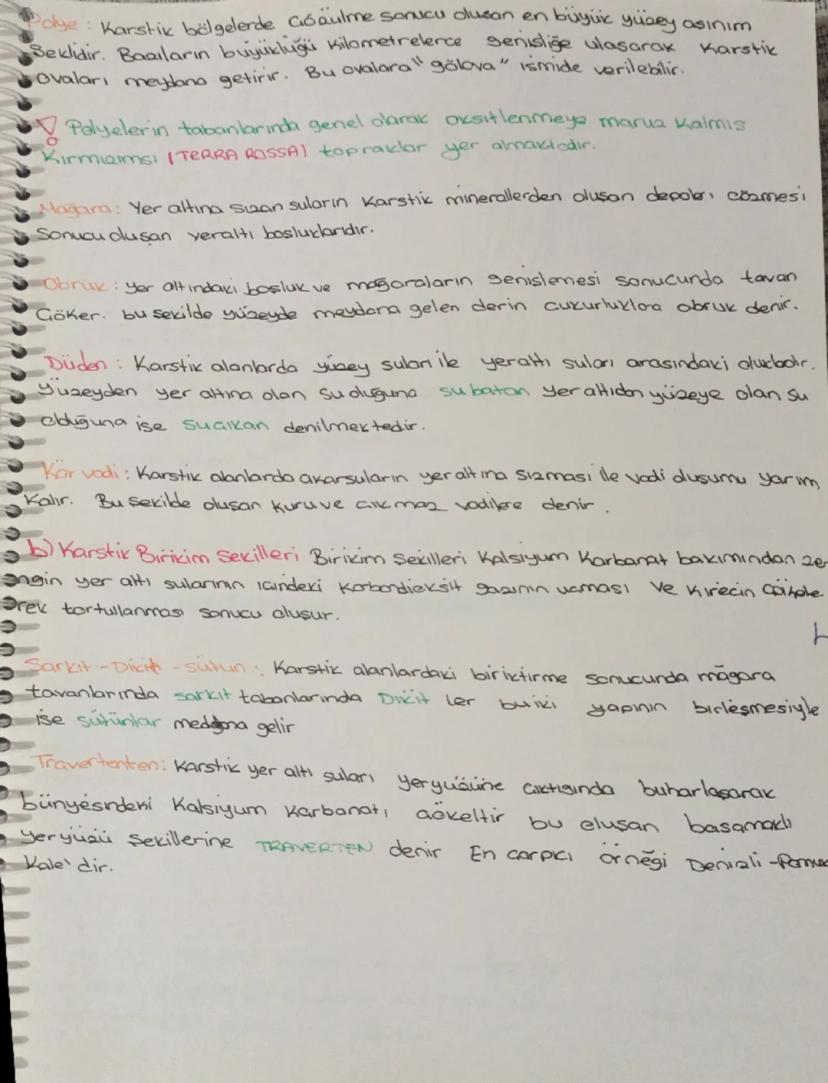 Polye : Karstik bölgelerde Çözülme sonucu oluşan en büyük yüzey aşınım
Şeklidir. Bazıların büyüklüğü Kilometrelerce genişliğe ulaşarak Karstik
ovaları meydana getirir. Bu ovalara "gölova" ismide verilebilir.
! Polyelerin tabanlarında genel olarak oksitlenmeye maruz Kalmış
Kırmızımsı (TERRA ROSSA) topraklar yer almaktadır.
Mağara: Yer altına sızan suların Karstik minerallerden oluşan depoları çözmesi
Sonucu oluşan yeraltı boşluklarıdır.
Obruk : yer altındaki boşluk ve mağaraların genişlemesi sonucunda tavan
Çöker. bu şekilde yüzeyde meydana gelen derin çukurluklara obruk denir.
Düden : Karstik alanlarda yüzey suları ile yeraltı suları arasındaki
yüzeyden yer altına olan Su oluğuna su batan yer altıdan yüzeye olan su
olduğuna ise suçıkan denilmektedir.
Kör vadi : Karstik alanlarda akarsuların yer altına sızması ile vadi oluşumu yarım
Kalır. Bu şekilde oluşan kuru ve çıkmaz vadilere denir.
b) Karstik Birikim Şekilleri Birikim Şekilleri Kalsiyum Karbanat bakımından ze
engin yer altı sularının içindeki Karbondioksit gazının uçması ve Kirecin Çökele
erek tortullanması sonucu oluşur.
Sarkıt - Dikit - sütun : Karstik alanlardaki biriktirme sonucunda mağara
tavanlarında sarkıt tabanlarında Dikit ler bu iki yapının birleşmesiyle
ise sütünlar meydana gelir
Travertenten: Karstik yer altı suları yeryüzüne çıktığında buharlaşarak
bünyesindeki Kalsiyum Karbanatı çökeltir bu oluşan basamaklı
yeryüzü şekillerine TRAVERTEN denir En çarpıcı Örneği Denizli - Pamuk
Kale' dir.